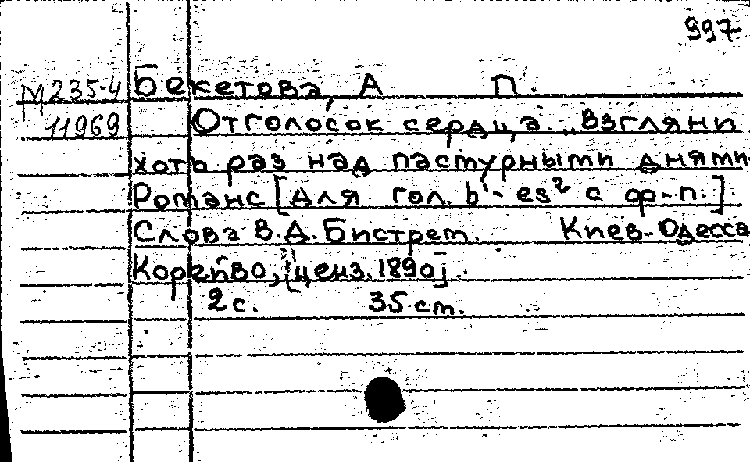 997
М 235-4 Бекетова, А П.
11969 Отголосок сердца... Взгляни
хоть раз над пастурными днями
Романс [Для гол. b¹- es² с фр-п.]
Слова В.Д. Бистрем. Киев-Одесса
Корейво, [ценз. 1890]
2 с. 35 ст.